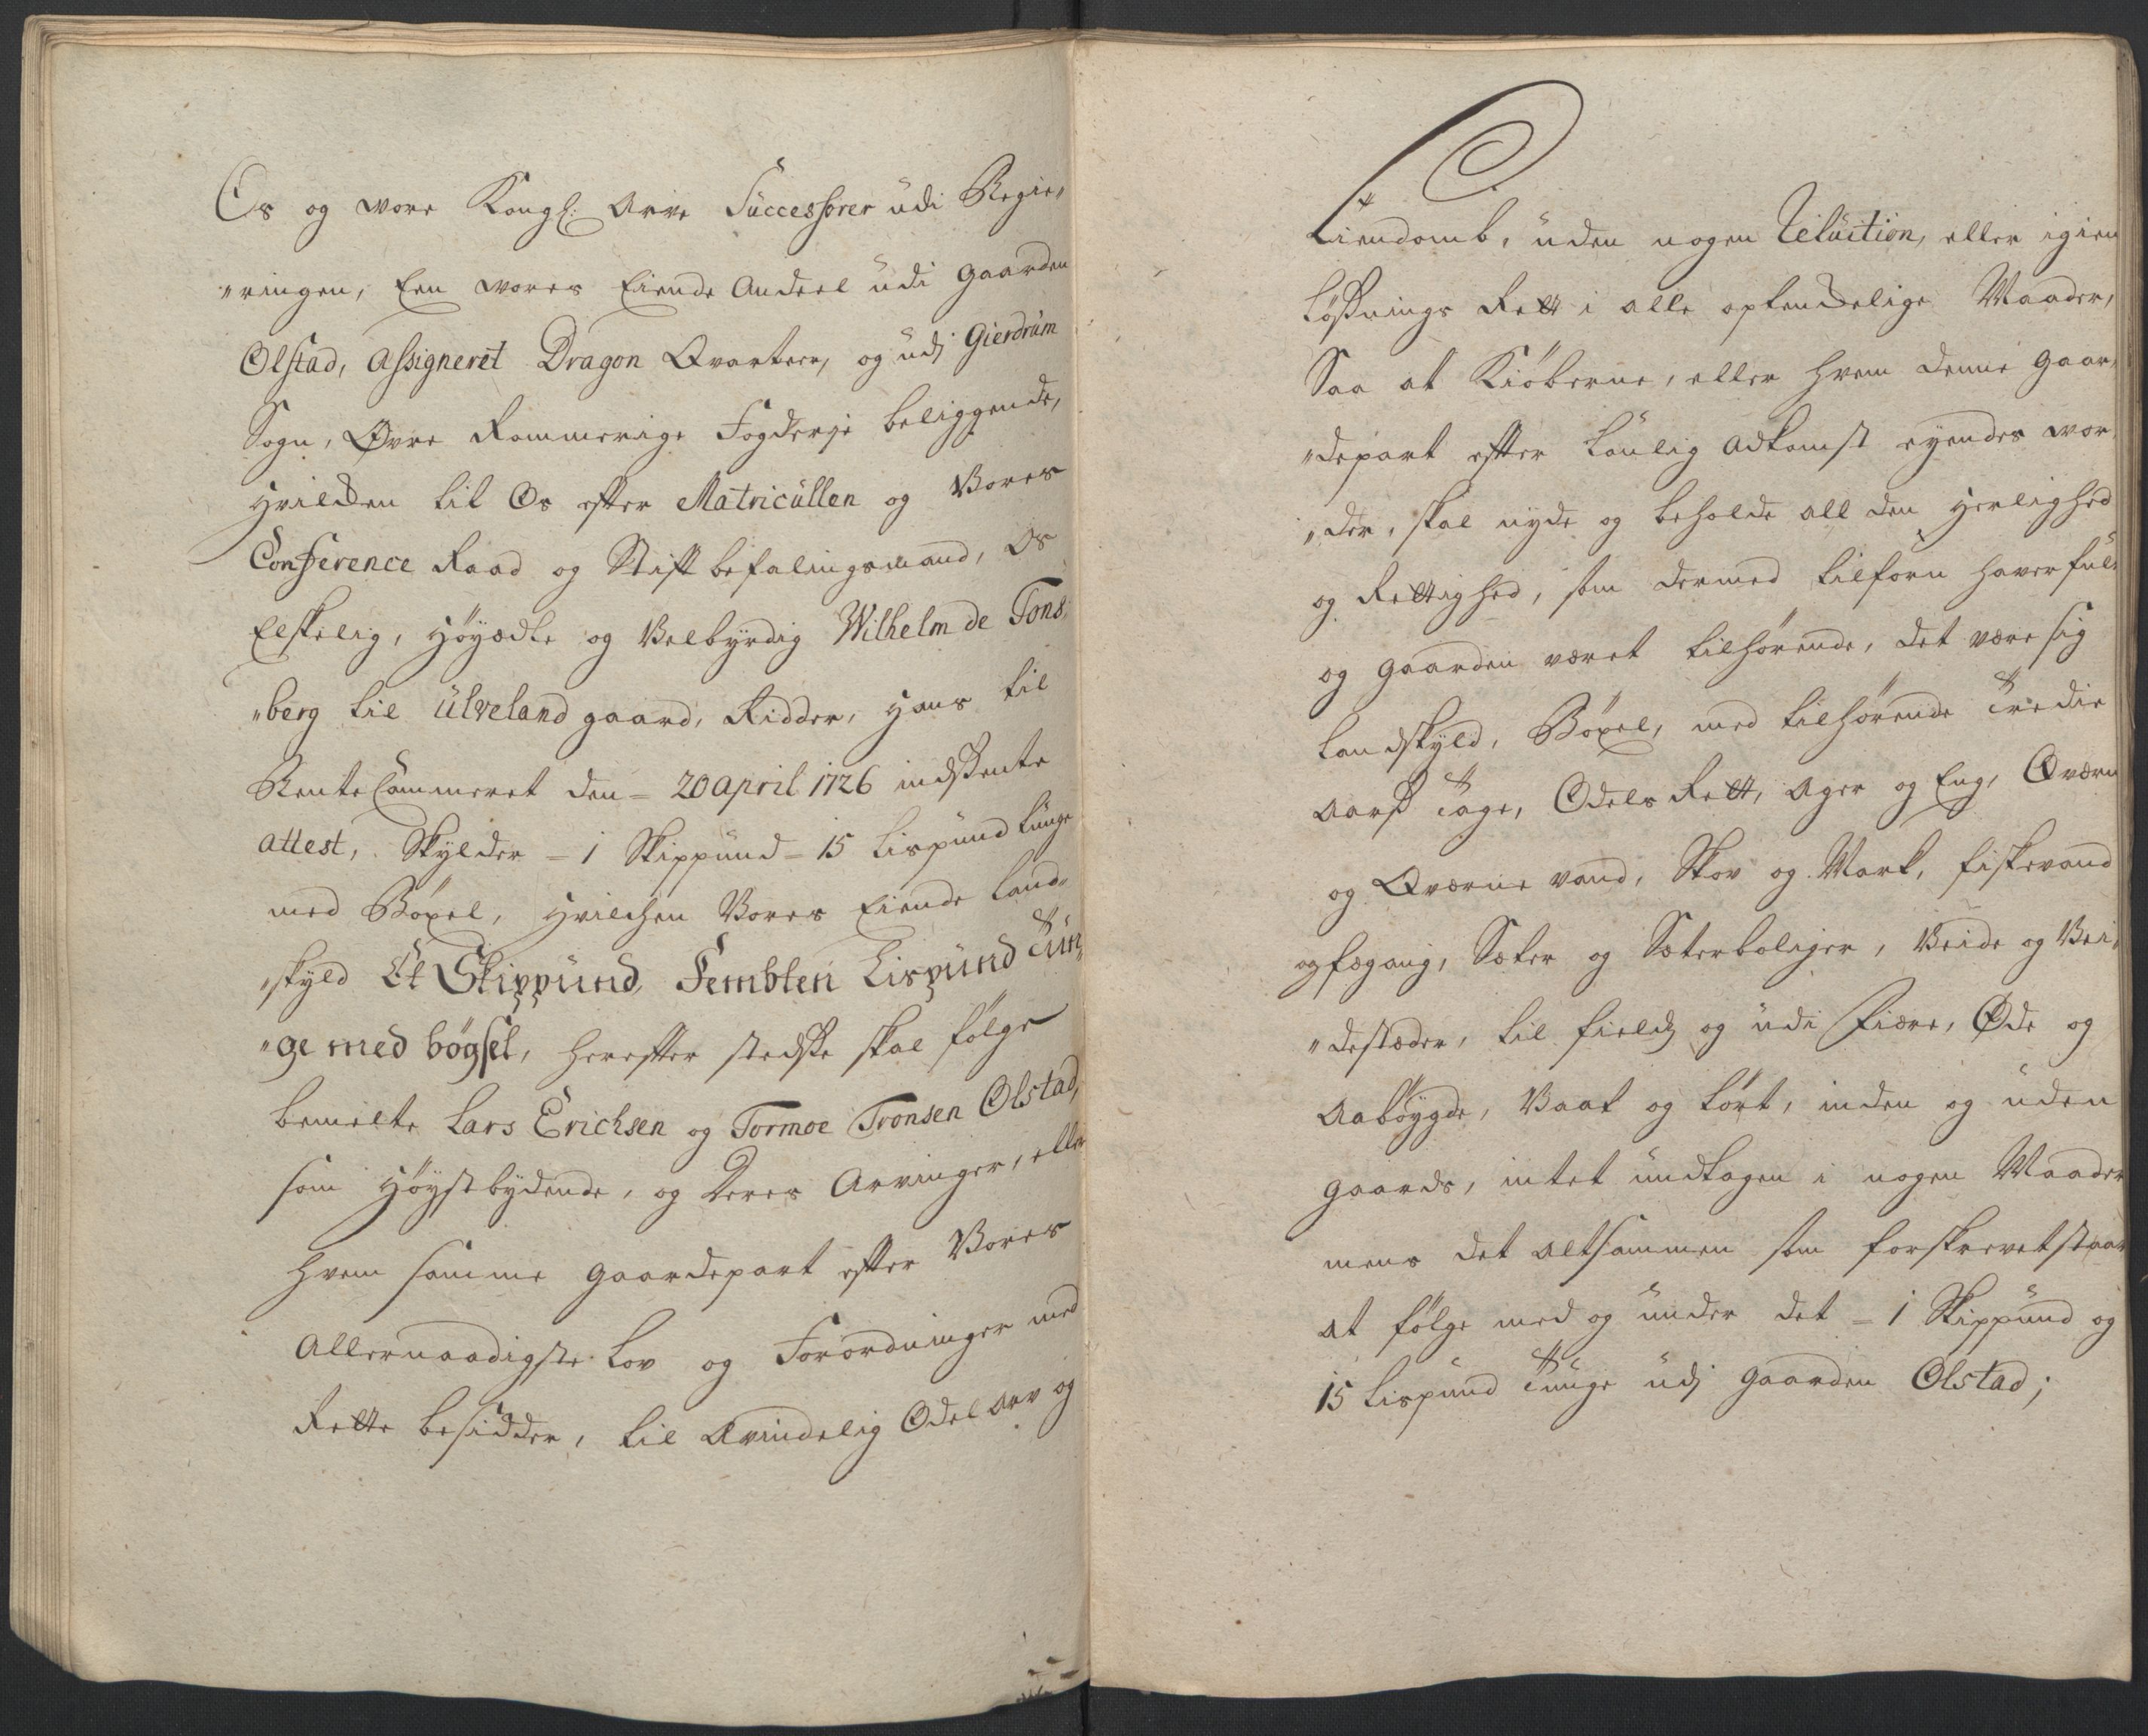 Os og vore Kongl: Arve Successorer udi Regie„
„ringen, Een vores Eiende Andeel udi gaarden
Olstad, Assigneret Dragon Qvarteer, og udj Gierdrum
Sogn, Øvre Rommerige Fogderje beliggende,
Hvilcken til Os efter Matricullen og Vores
Conference Raad og Stiftbefalingsmand, Os
Elskelig, Høyædle og Velbyrdig Wilhelm de Tons„
„berg til Ulveland gaard, Ridder, Hans til
Rente Cammeret den = 20 April 1726 indskente
attest, Skylder = 1 Skippund = 15 Lispund tunge
med Böxel, Hvilchen Vores Eiende Land„
„skyld Et Skippund, Fembten Lispund Tun„
„ge med bögsel, herefter stedse skal følge
bemelte Lars Erichsen og Tormoe Tronsen Olstad,
som Höystbydende, og Deres Arvinger, eller
hvem samme gaardepart efter Vores
Allernaadigste Lov og Forordninger med
Rette besidder, til Avindelig Odel arv og
Eiendomb, uden nogen Reluition, eller igien
Løssnings Rett i alle optenckelige Maader,
Saa at Kiöberne, eller hvem denne gaar„
„depart efter Lovlig adkomst eyendes vor„
„der, skal nyde og beholde all den Herlighed
og Rettighed, som dermed tilforn haver fuld
og gaarden været tilhørende, det være sig
Landskyld, Böxel, med tilhørende Tredie
Aars Tage, Odels Rett, Ager og Eng, Qværn
og Qværne vand, Skov og Mark, fiskevand
og fægang, Sæter og Sæterboliger, Veide og Vei„
„destæder, til fields og udi Fiære, Øde og
Aabøygde, Vaat og tört, inden og uden
gaards, intet undtagen i nogen Maader
mens det altsammen som forskrevet staar
at følge med og under det = 1 Skippund og
15 Lispund Tunge udj gaarden Olstad;